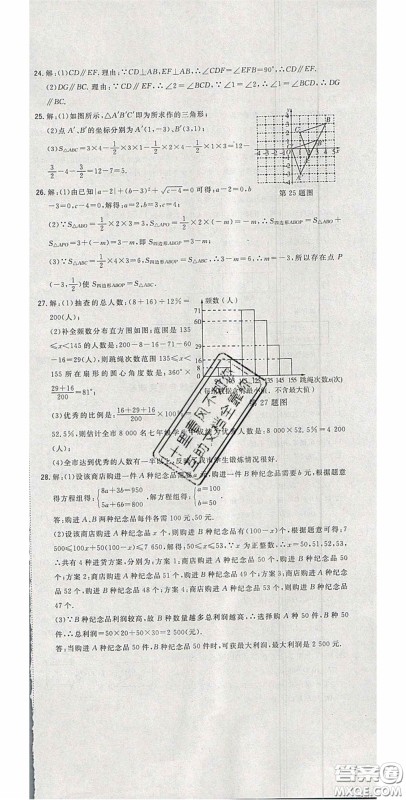 24.解:(1)CD∥EF.理由:∵CD⊥AB,EF⊥AB,∴∠CDF=∠EFB=90°,∴CD∥EF.
(2)DG∥BC.理由:∵CD∥EF,∴∠2=∠BCD,∵∠1=∠2,∴∠1=∠BCD,∴DG
∥BC.
25.解:(1)如图所示,△A′B′C′即为所求作的三角形;
(2)点A′,B′的坐标分别为A′(1,-3),B′(3,1);
(3)S△ABC=3×4-1/2×3×1-1/2×2×4-
3/2-4-3=12-7=5.
第25题图
26.解:(1)由已知|a-2|+(b-3)²+√c-4=0可得:a-2=0,b
-3=0,c-4=0,解得a=2,b=3,c=4;
(2)∵S△ABO=1/2×2×3=3,S△APO=1/2×2×(-m)=-m,∴S四边形ABOP=S△ABO+
S△APO=3+(-m)=3-m,即S四边形ABOP=3-m;
(3)∵S△ABC=1/2×4×3=6,∵S四边形ABOP=S△ABC,∴3-m=6,∴m=-3,所以存在点P
(-3,1/2)使S四边形ABOP=S△ABC.
27.解:(1)抽查的总人数:(8+16)÷12%=
200(人);
(2)补全频数分布直方图如图:范围是135
≤x<145的人数是:200-8-16-71-60
-16=29(人),则跳绳次数范围在135≤x≤
155所在扇形的圆心角度数是:360°×
29+16/200=81°;
频数(人)
71
跳绳次数n(次)
第27题图
(3)优秀的比例是:60+29+16/200×100%=
52.5%,则估计全市8 000名七年级
52.5%=4 200
(人);
(4)全市达到优秀的人数有一半以上
锻炼情况很好.
28.解:(1)设该商店购进一件A种纪念品需要a元,购进一件B种纪念品需要b元,根据题意
得方程组得:{8a+3b=950 5a+6b=800,解方程组得:{a=100 b=50
答:购进A、B两种纪念品每件各需100元,50元.
(2)设该商店购进A种纪念品x个,则购进B种纪念品有(100-x)个,根据题意可得:7
500≤100x+50(100-x)≤7 650,解得:50≤x≤53,∵x为正整数,∴x=50,51,52,53,
∴共有4种进货方案,方案1:商店购进A种纪念品50个,购进B种纪念品50个;方案2:
商店购进A种纪念品51个,购进B种纪念品49个;方案3:商店购进A种纪念品52个,
购进B种纪念品48个;方案4:商店购进A种纪念品53个,购进B种纪念品
47个.
(3)∵B种纪念品利润较高,故B种数量越多总利润越高,∴选择购A种50件,B种50
件,总利润=50×20+50×30=2 500(元).
答:当购进A种纪念品50件,B种纪念品50件时,可获最大利润,最大利润是2 500元.